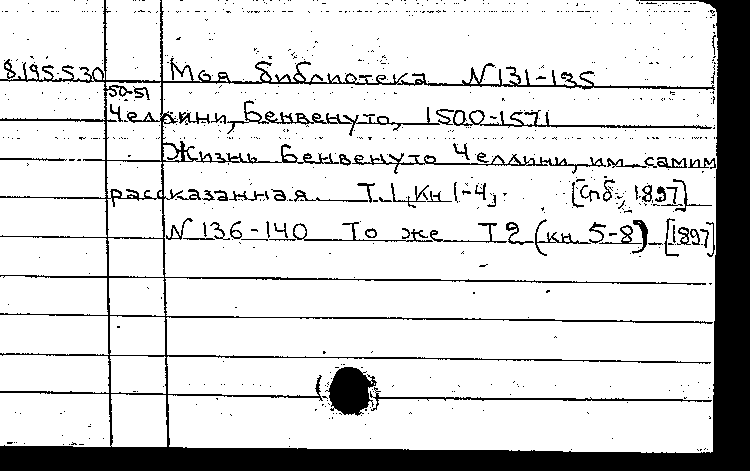 8.195.530 Моя библиотека N131-135
50-51
Челлини, Бенвенуто, 1500-1571
Жизнь Бенвенуто Челлини, им самим
рассказанная. Т.1, Кн 1-4, [Спб, 1897]
N 136-140 То же Т2 (кн. 5-8) [1897]